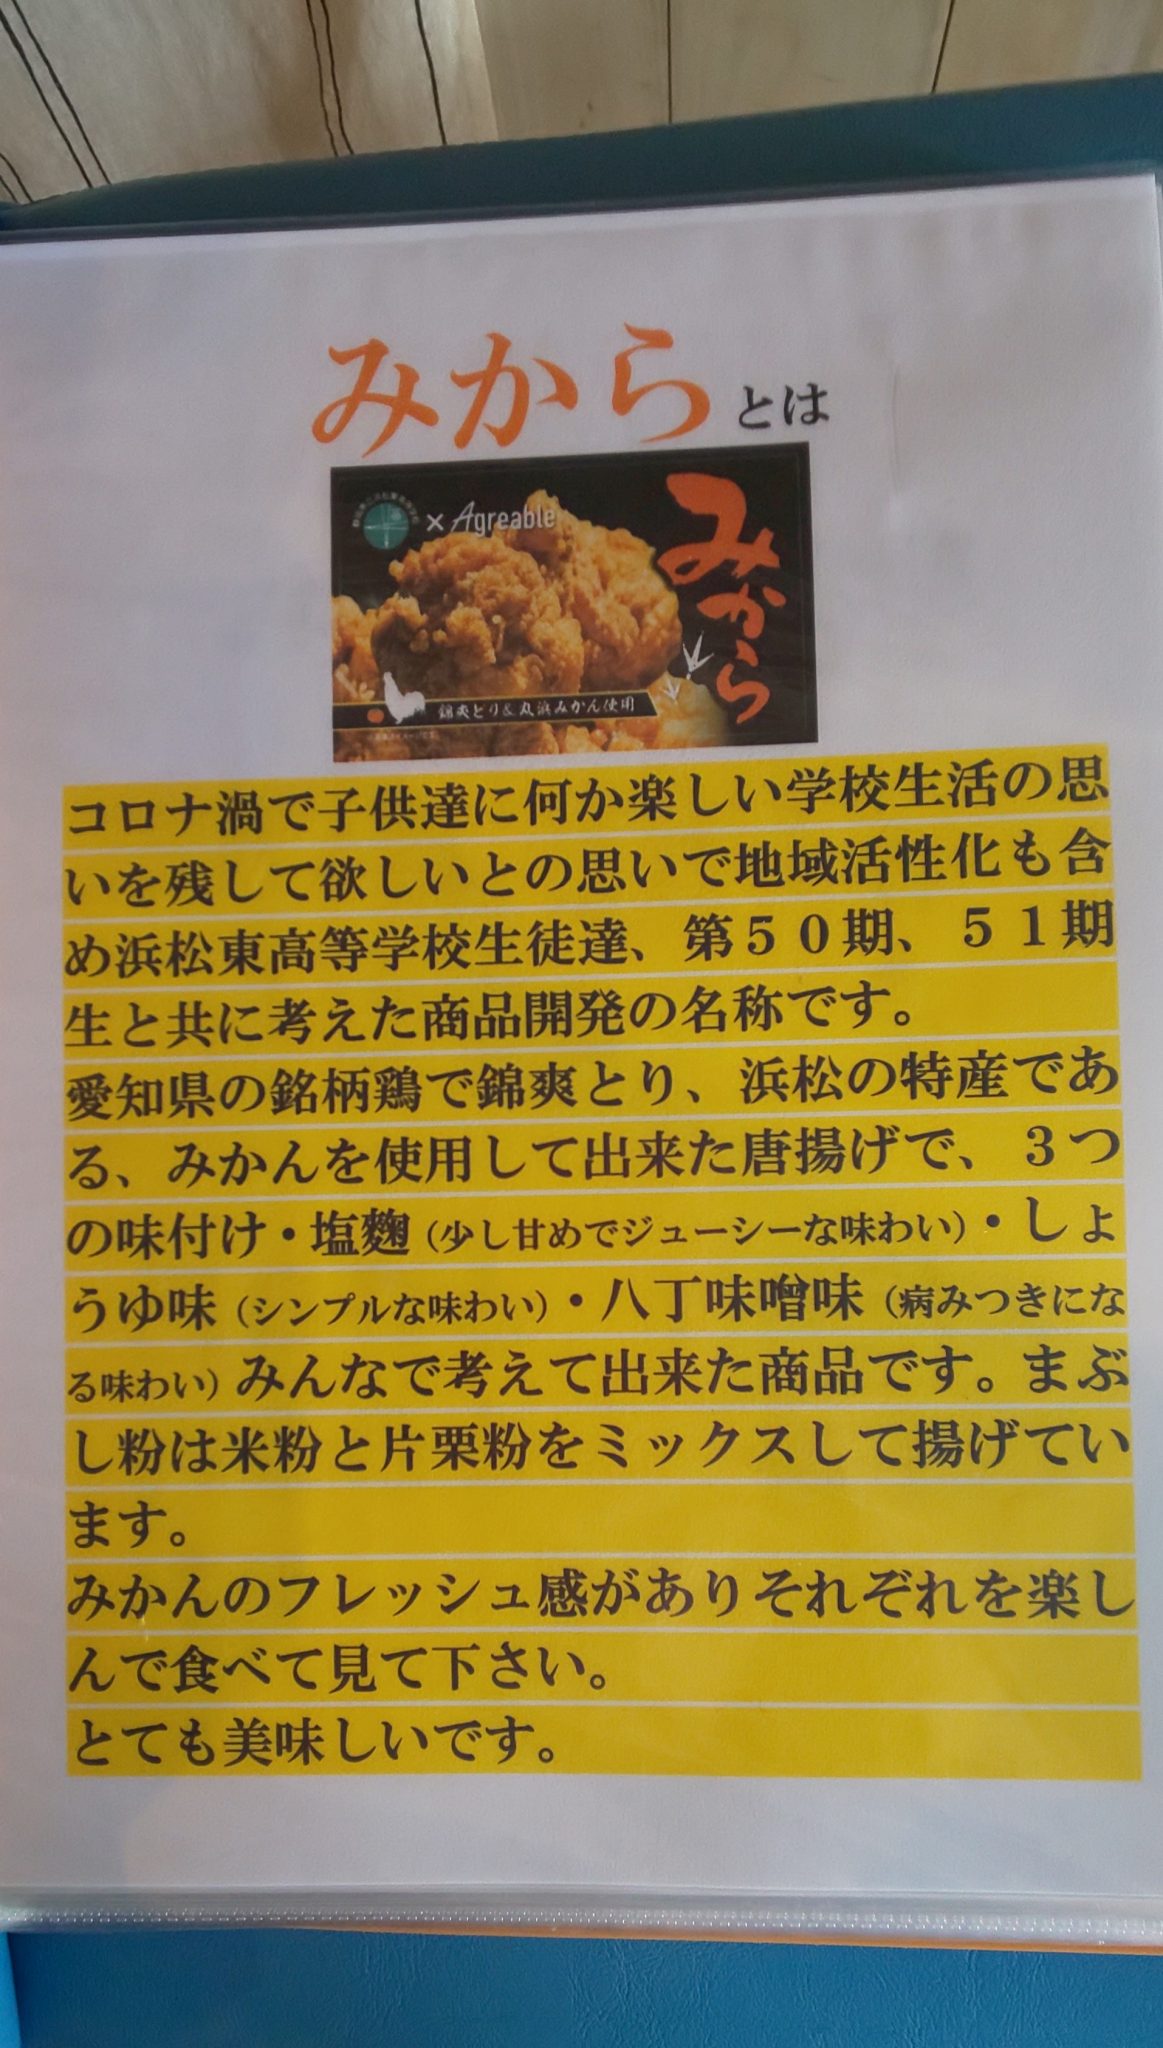 みからとは
× Agreable
みから
錦爽とり&丸浜みかん使用
コロナ渦で子供達に何か楽しい学校生活の思
いを残して欲しいとの思いで地域活性化も含
め浜松東高等学校生徒達、第５０期、５１期
生と共に考えた商品開発の名称です。
愛知県の銘柄鶏で錦爽とり、浜松の特産であ
る、みかんを使用して出来た唐揚げで、３つ
の味付け・塩麹（少し甘めでジューシーな味わい）・しょ
うゆ味（シンプルな味わい）・八丁味噌味（病みつきにな
る味わい）みんなで考えて出来た商品です。まぶ
し粉は米粉と片栗粉をミックスして揚げてい
ます。
みかんのフレッシュ感がありそれぞれを楽し
んで食べて見て下さい。
とても美味しいです。